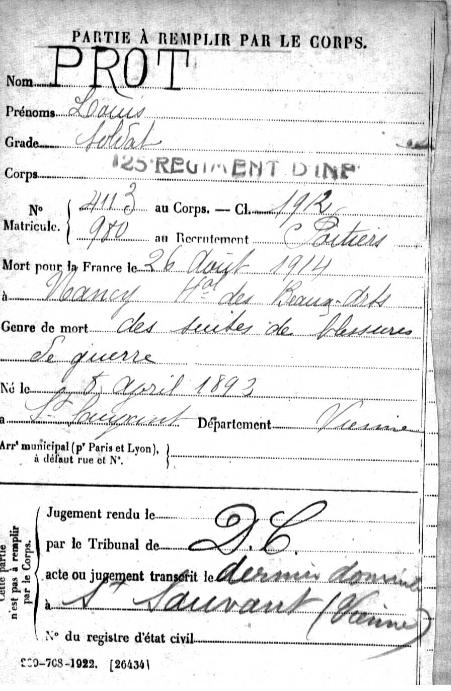 PARTIE À REMPLIR PAR LE CORPS.
Nom PROT
Prénoms Louis
Grade Soldat
Corps 125 REGIMENT D'INF
N° Matricule. { 4113 au Corps. — Cl. 1912
980 au Recrutement Poitiers
Mort pour la France le 26 Août 1914
à Nancy Hal des Beaux-Arts
Genre de mort des suites de blessures
de guerre
Né le 8 april 1893
a St Département Vienne
Arrt municipal (pr Paris et Lyon), à défaut rue et N°. }
Cette partie n'est pas à remplir par le Corps.
Jugement rendu le
par le Tribunal de D.C.
acte ou jugement transcrit le dernier domicile
à St Sauvant (Vienne)
N° du registre d'état civil
-708-1922. [26434]